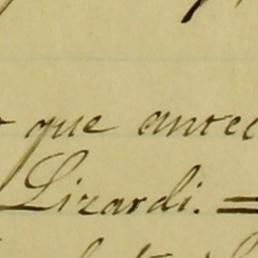 que antec
Lizardi. =